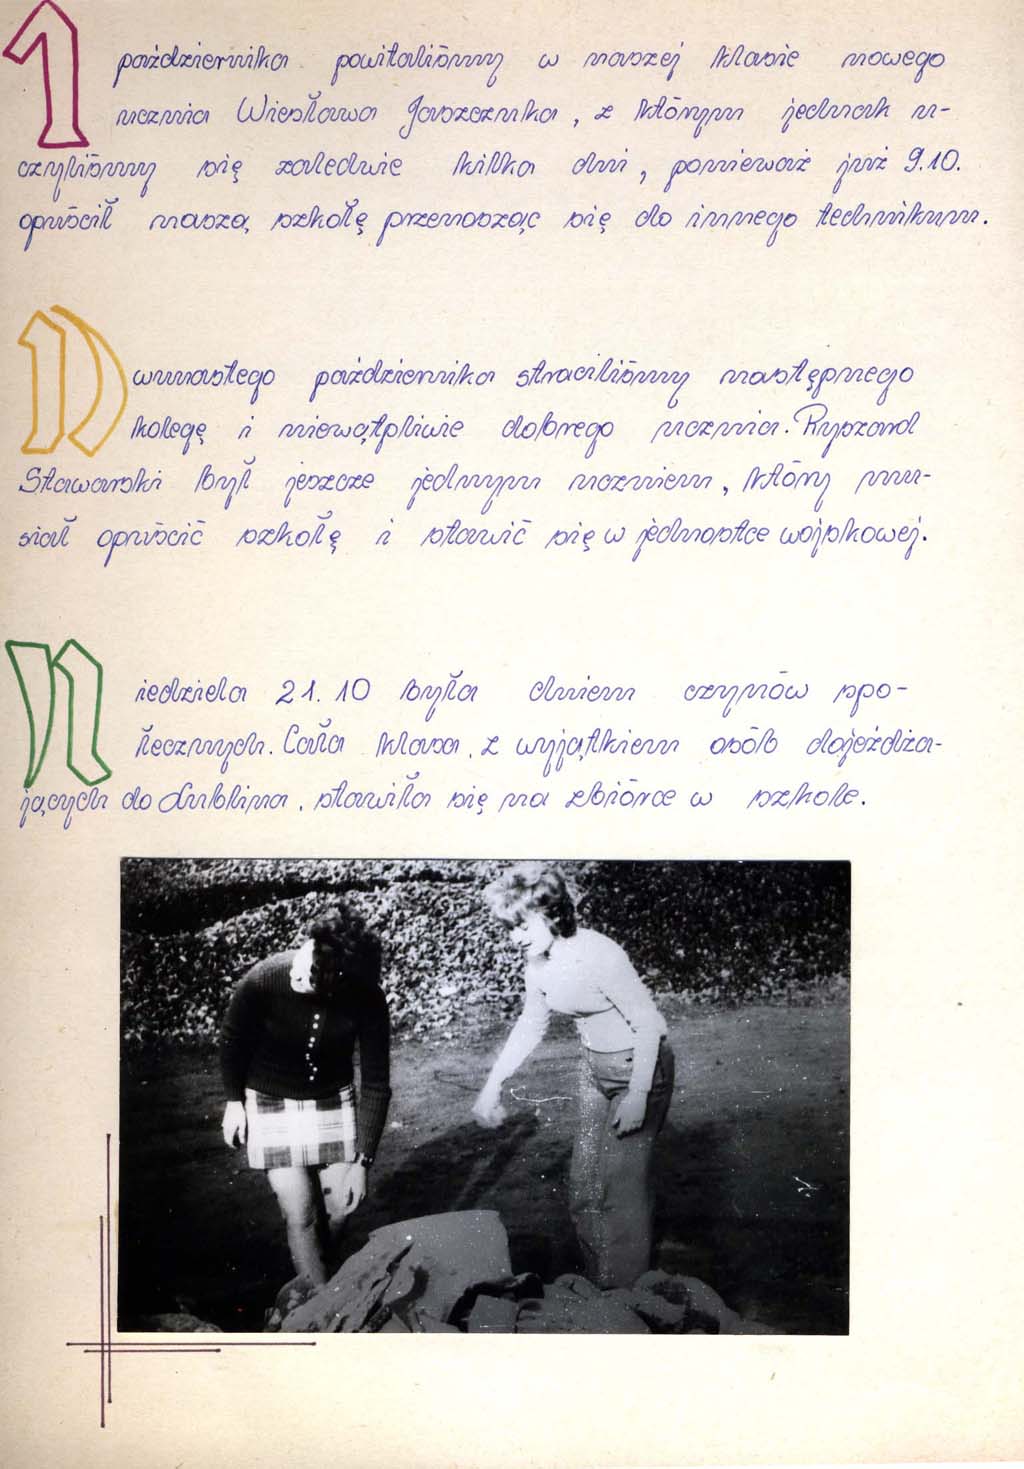 1 października powitaliśmy w naszej klasie nowego
ucznia Wiesława Jaszczuka, z którym jednak u-
czyliśmy się zaledwie kilka dni, ponieważ już 9.10.
opuścił naszą szkołę przenosząc się do innego technikum.
Dwunastego października straciliśmy następnego
kolegę i niewątpliwie dobrego ucznia. Ryszard
Stawarski był jeszcze jednym uczniem, który mu-
siał opuścić szkołę i stawić się w jednostce wojskowej.
Niedziela 21.10 była dniem czynów spo-
łecznych. Cała klasa, z wyjątkiem osób dojeżdża-
jących do Lublina, stawiła się na zbiórce w szkole.